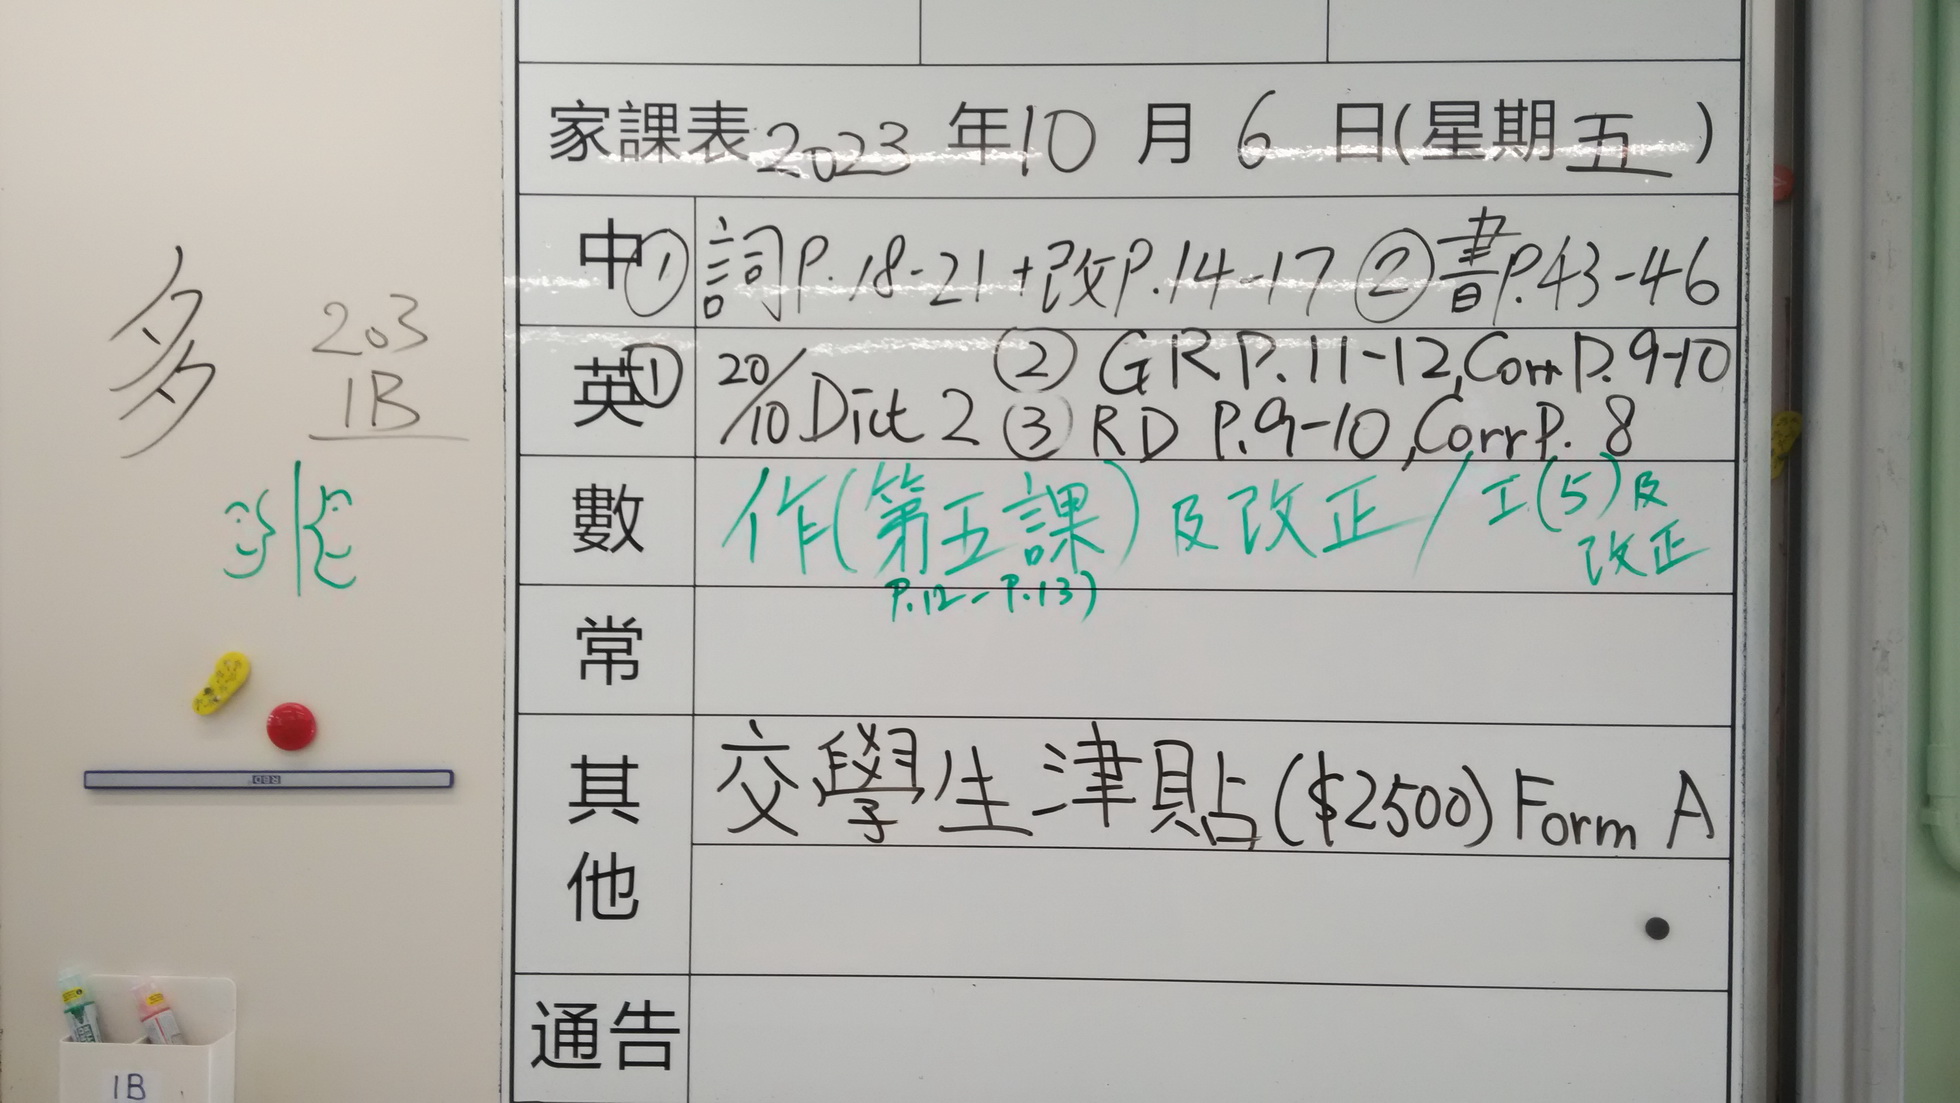 家課表 2023 年 10 月 6 日(星期五)
中 ① 詞P.18-21+改P.14-17 ②書P.43-46
英 ① 20/10 Dict 2 ② GR P.11-12, Corr P.9-10
③ RD P.9-10, Corr P. 8
數 作(第五課)及改正/工(5)及
改正
P.12-P.13)
常
其他 交學生津貼($2500) Form A
通告
多
203
1B
1B